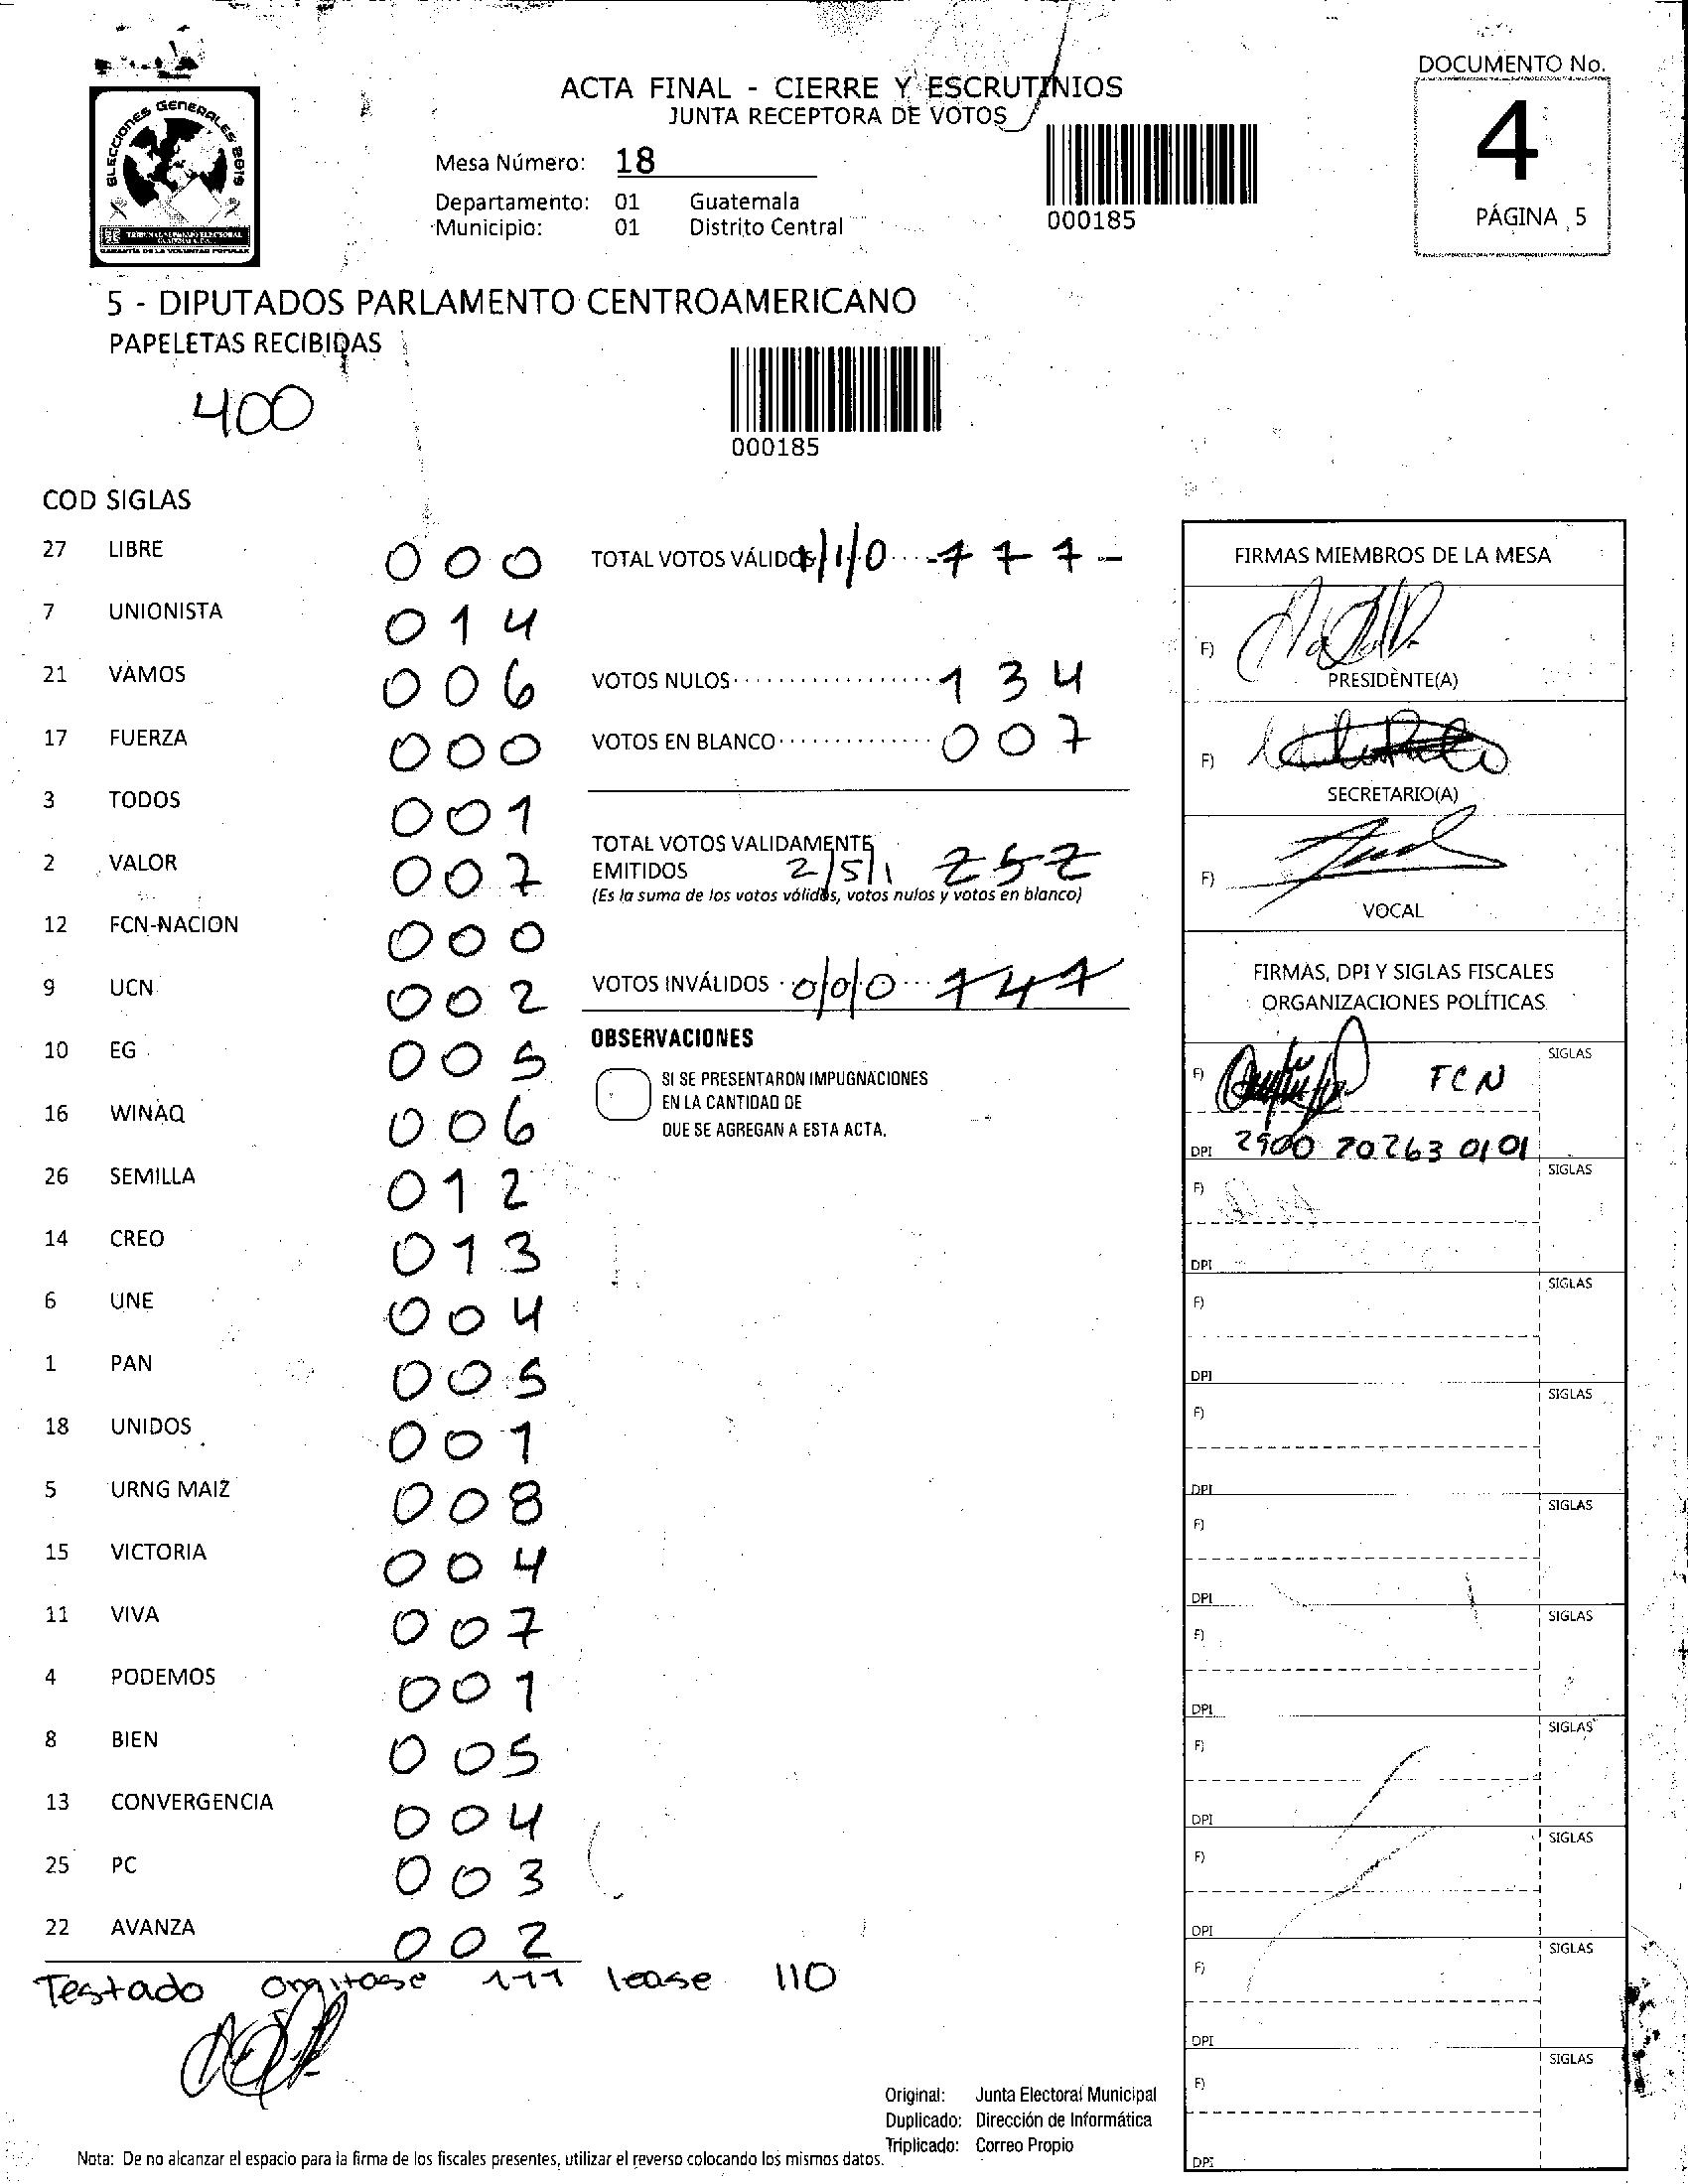 DOCUMENTO No.
ACTA FINAL - CIERRE Y ESCRUTINIOS
JUNTA RECEPTORA DE VOTOS
4
PÁGINA 5
ELECCIONES GENERALES 2019
TRIBUNAL SUPREMO ELECTORAL
GUATEMALA, C.A.
GARANTÍA DE LA VOLUNTAD POPULAR
Mesa Número: 18
Departamento: 01 Guatemala
Municipio: 01 Distrito Central
000185
5 - DIPUTADOS PARLAMENTO CENTROAMERICANO
PAPELETAS RECIBIDAS
400
000185
COD SIGLAS
27 LIBRE 000
7 UNIONISTA 014
21 VAMOS 006
17 FUERZA 000
3 TODOS 001
2 VALOR 007
12 FCN-NACION 000
9 UCN 002
10 EG 005
16 WINAQ 006
26 SEMILLA 012
14 CREO 013
6 UNE 004
1 PAN 005
18 UNIDOS 001
5 URNG MAIZ 008
15 VICTORIA 004
11 VIVA 007
4 PODEMOS 001
8 BIEN 005
13 CONVERGENCIA 004
25 PC 003
22 AVANZA 002
Testado omitase 111 lease 110
TOTAL VOTOS VÁLIDOS 1/1/0
VOTOS NULOS 134
VOTOS EN BLANCO 007
TOTAL VOTOS VALIDAMENTE
EMITIDOS 2/5/1 252
(Es la suma de los votos válidos, votos nulos y votos en blanco)
VOTOS INVÁLIDOS 0/0/0
OBSERVACIONES
SI SE PRESENTARON IMPUGNACIONES
EN LA CANTIDAD DE
QUE SE AGREGAN A ESTA ACTA.
FIRMAS MIEMBROS DE LA MESA
F)
PRESIDENTE(A)
F)
SECRETARIO(A)
F)
VOCAL
FIRMAS, DPI Y SIGLAS FISCALES
ORGANIZACIONES POLÍTICAS
F) FCN SIGLAS
DPI 2900 20263 0101
F) SIGLAS
DPI
F) SIGLAS
DPI
F) SIGLAS
DPI
F) SIGLAS
DPI
F) SIGLAS
DPI
F) SIGLAS
DPI
F) SIGLAS
DPI
F) SIGLAS
DPI
F) SIGLAS
DPI
Original: Junta Electoral Municipal
Duplicado: Dirección de Informática
Triplicado: Correo Propio
Nota: De no alcanzar el espacio para la firma de los fiscales presentes, utilizar el reverso colocando los mismos datos.